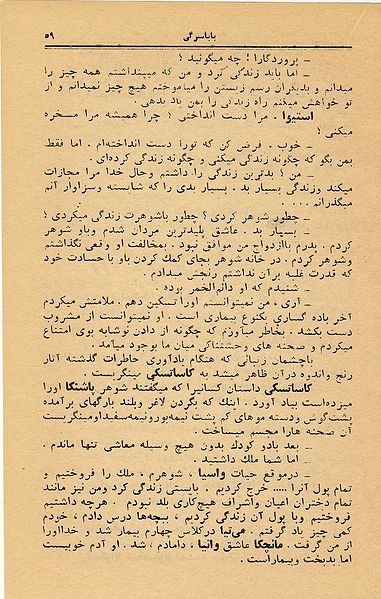 باباسرگی ۵۹
ـ پروردگارا ! چه میگوئید ؟
ـ اما باید زندگی کرد و من که میپنداشتم همه چیز را
میدانم و بدیگران رسم زیستن را میآموختم هیچ چیز نمیدانم و از
تو خواهش میکنم راه زندگی را بمن یاد بدهی .
استپوا . مرا دست انداختی ؟ چرا همیشه مرا مسخره
میکنی ؟
ـ خوب . فرض کن که تورا دست انداخته‌ام . اما فقط
بمن بگو که چگونه زندگی میکنی و چگونه زندگی کرده‌ای .
ـ من ؟ بدترین زندگی را داشتم وحال خدا مرا مجازات
میکند وزندگی بسیار بد . بسیار بدی را که شایسته وسزاوار آنم
میگذرانم . . . .
ـ چطور شوهر کردی ؟ چطور باشوهرت زندگی میکردی ؟
ـ بسیار بد . عاشق پلیدترین مردان شدم وباو شوهر
کردم . پدرم باازدواج من موافق نبود . بمخالفت او وقعی نگذاشتم
وشوهر کردم . در خانه شوهر بجای کمک کردن باو با حسادت خود
که قدرت غلبه برآن نداشتم رنجش میدادم .
ـ شنیدم که او دائم‌الخمر بوده .
ـ آری ، من نمیتوانستم اورا تسکین دهم . ملامتش میکردم
آخر باده گساری یکنوع بیماری است . او نمیتوانست از مشروب
دست بکشد . بخاطر میآورم که چگونه از دادن نوشابه بوی امتناع
میکردم و صحنه های وحشتناکی میان ما بوجود میآمد .
باچشمان زیبائی که هنگام یادآوری خاطرات گذشته آثار
رنج واندوه درآن ظاهر میشد به کاساتسکی مینگریست .
کاساتسکی داستان کسانیرا که میگفتند شوهر پاشنکا اورا
میزده‌است بیاد آورد . اینك که بگردن لاغر وبلند بارگهای برآمده
پشت‌گوش ودسته موهای کم پشت نیمه‌بورونیمه‌سفیداومینگریست
آن صحنه هارا مجسم میساخت .
ـ بعد بادو کودك بدون هیچ وسیله معاشی تنها ماندم .
ـ اما شما ملك داشتید .
ـ درموقع حیات واسیا ، شوهرم ، ملك را فروختیم و
تمام پول آنرا ..... خرج کردیم . بایستی زندگی کرد ومن نیز مانند
تمام دختران اعیان واشراف هیچ‌کاری بلد نبودم . هرچه داشتیم
فروختیم وبا پول آن زندگی کردیم ، ببچه‌ها درس دادم ، خودم
کمی چیز یاد گرفتم . میتیا درکلاس چهارم بیمار شد و خدااورا
از من گرفت . مانچکا عاشق وانیا ، دامادم ، شد . او آدم خوبیست
اما بدبخت وبیماراست .